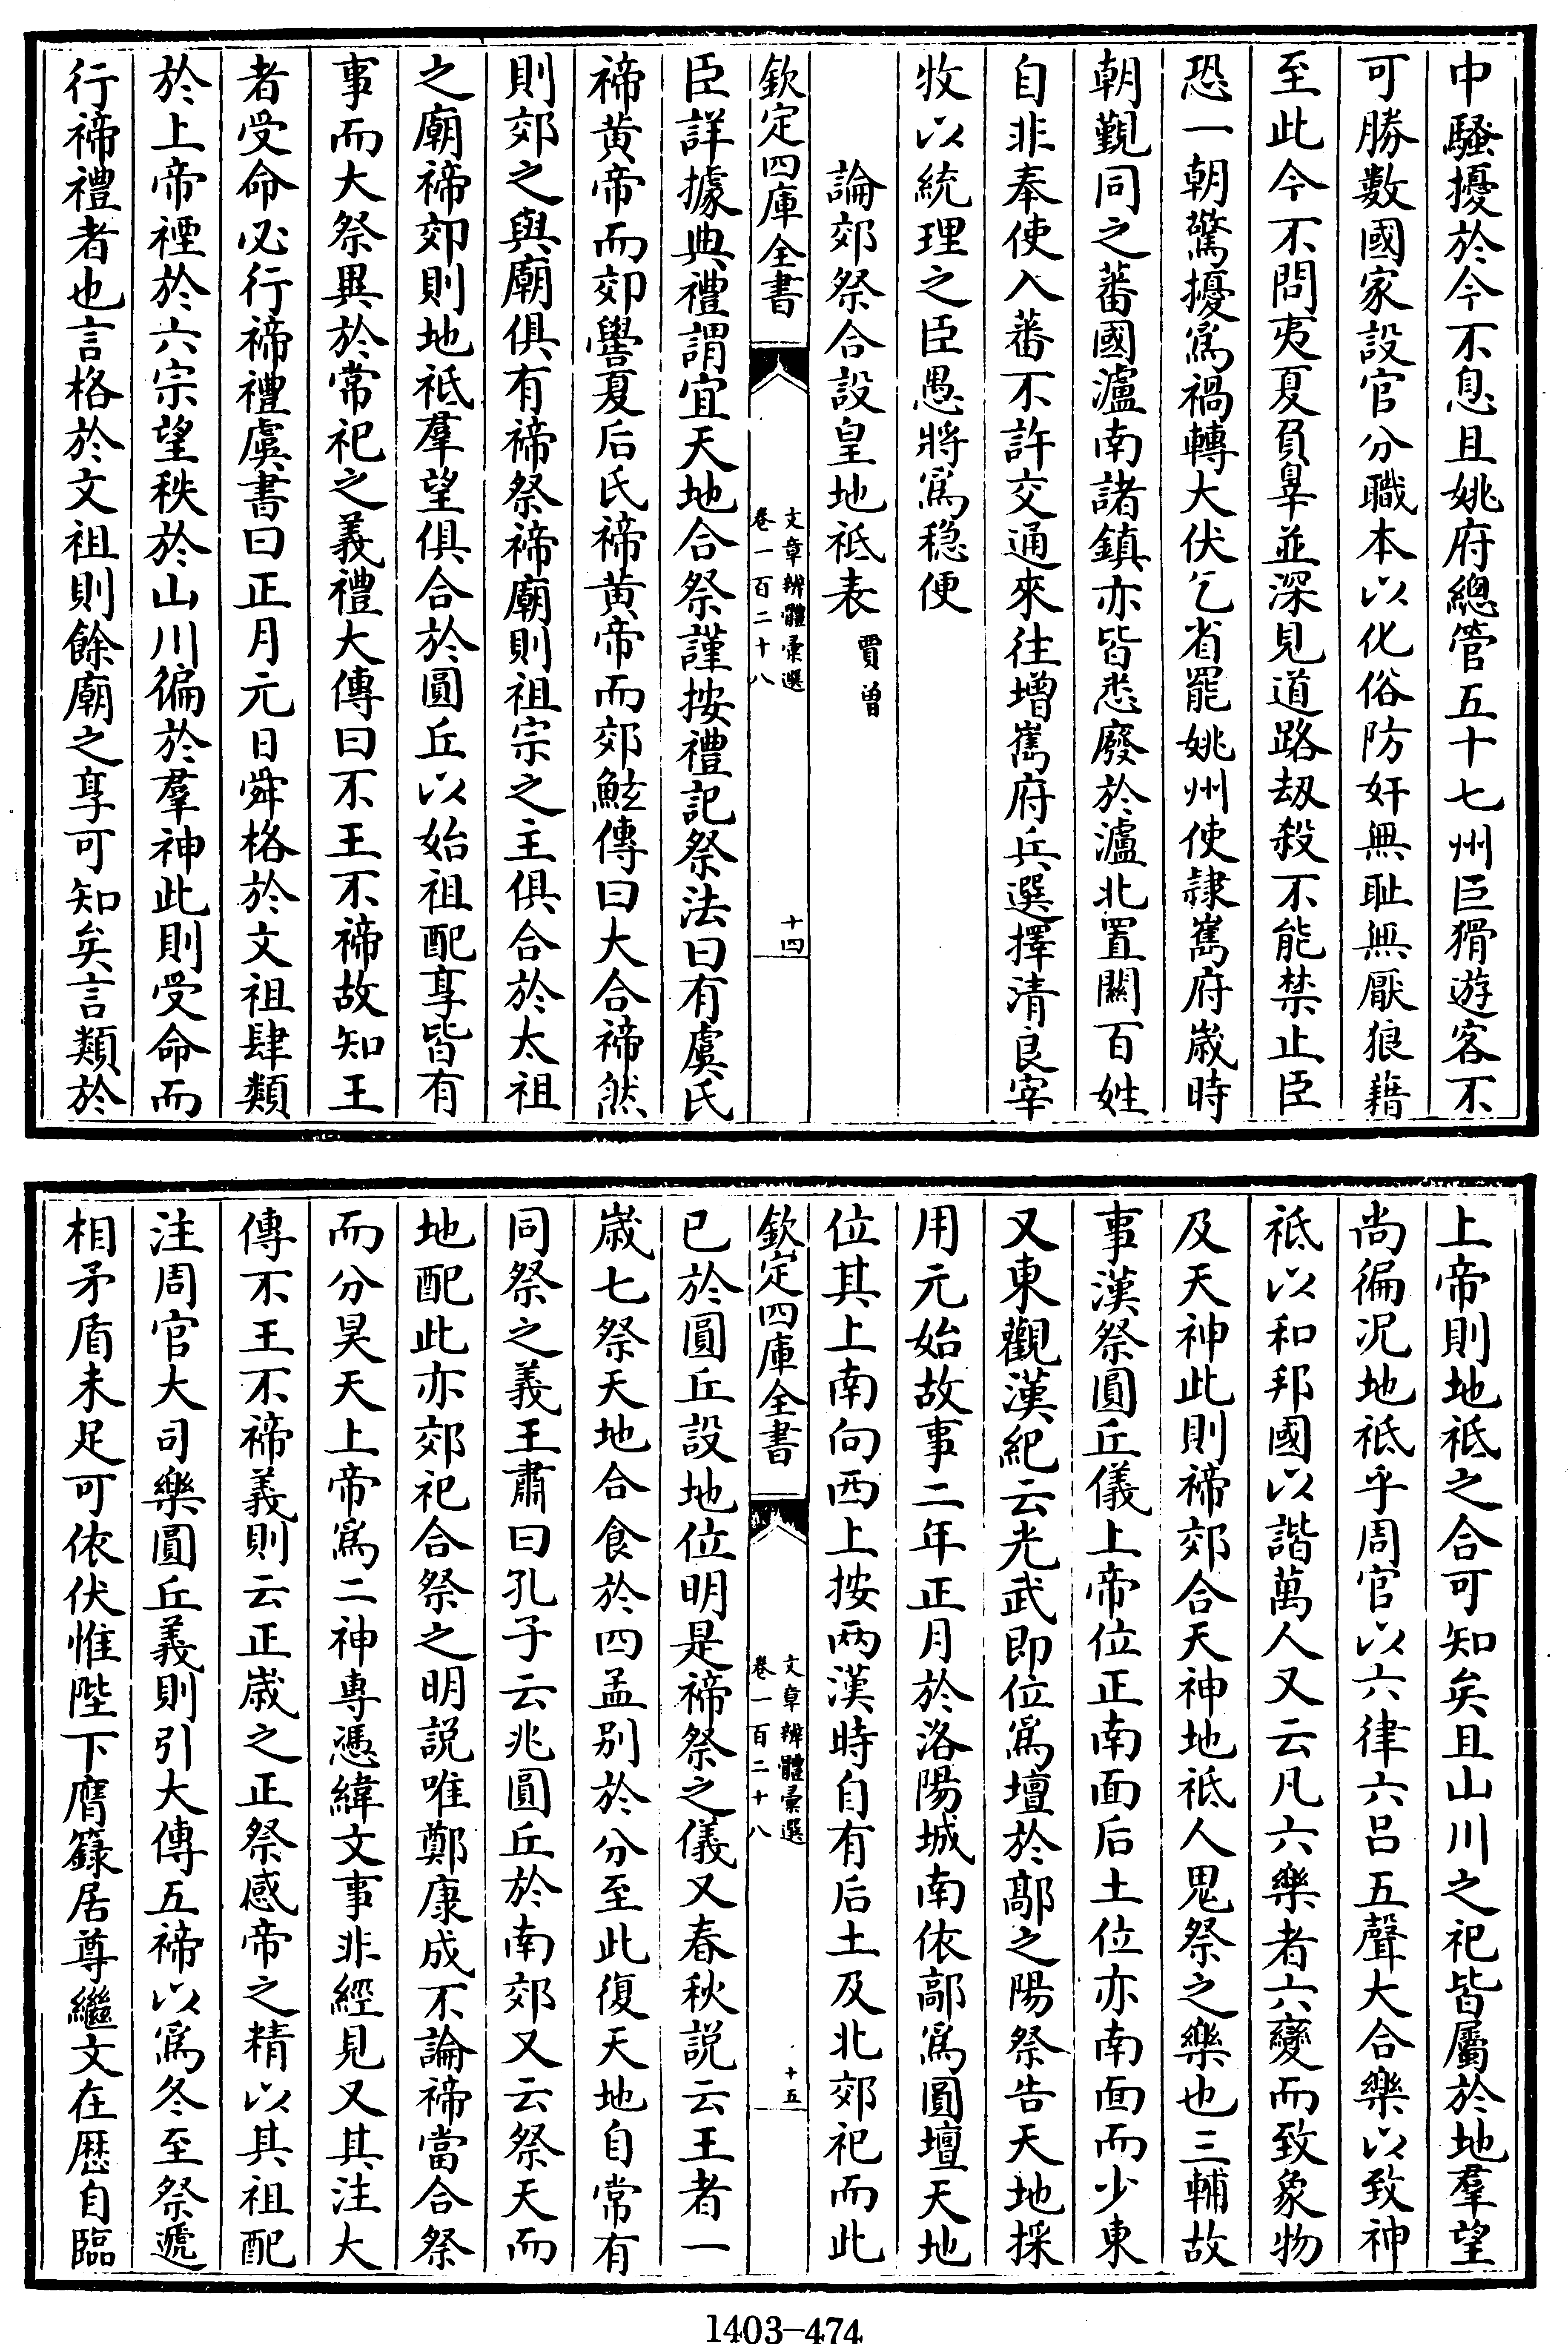 中騷擾於今不息且姚府總管五十七州巨猾遊客不
可勝數國家設官分職本以化俗防奸無耻無厭狼藉
至此今不問夷夏負辠並深見道路劫殺不能禁止臣
恐一朝驚擾爲禍轉大伏乞省罷姚州使隷嶲府歲時
朝覲同之蕃國瀘南諸鎮亦皆悉廢於瀘北置關百姓
自非奉使入蕃不許交通來往增嶲府兵選擇清良宰
牧以統理之臣愚將爲穩便
論郊祭合設皇地祗表 賈曾
欽定四庫全書
文章辨體彙選
卷一百二十八
十四
臣詳據典禮謂宜天地合祭謹按禮記祭法曰有虞氏
禘黄帝而郊嚳夏后氏禘黄帝而郊鮌傳曰大合禘然
則郊之與廟俱有禘祭禘廟則祖宗之主俱合於太祖
之廟禘郊則地祗羣望俱合於圓丘以始祖配享皆有
事而大祭異於常祀之義禮大傳曰不王不禘故知王
者受命必行禘禮虞書曰正月元日舜格於文祖肆類
於上帝禋於六宗望秩於山川徧於羣神此則受命而
行禘禮者也言格於文祖則餘廟之享可知矣言類於
上帝則地祗之合可知矣且山川之祀皆屬於地羣望
尚徧况地祗乎周官以六律六呂五聲大合樂以致神
祗以和邦國以諧萬人又云凡六樂者六變而致象物
及天神此則禘郊合天神地祗人鬼祭之樂也三輔故
事漢祭圓丘儀上帝位正南面后土位亦南面而少東
又東觀漢紀云光武即位爲壇於鄗之陽祭告天地採
用元始故事二年正月於洛陽城南依鄗爲圓壇天地
位其上南向西上按两漢時自有后土及北郊祀而此
欽定四庫全書
文章辨體彙選
卷一百二十八
十五
已於圓丘設地位明是禘祭之儀又春秋説云王者一
歲七祭天地合食於四孟别於分至此復天地自常有
同祭之義王肅曰孔子云兆圓丘於南郊又云祭天而
地配此亦郊祀合祭之明説唯鄭康成不論禘當合祭
而分昊天上帝爲二神專憑緯文事非經見又其注大
傳不王不禘義則云正歲之正祭感帝之精以其祖配
注周官大司樂圓丘義則引大傳五禘以爲冬至祭遞
相矛盾未足可依伏惟陛下膺籙居尊繼文在歴自臨
1403-474